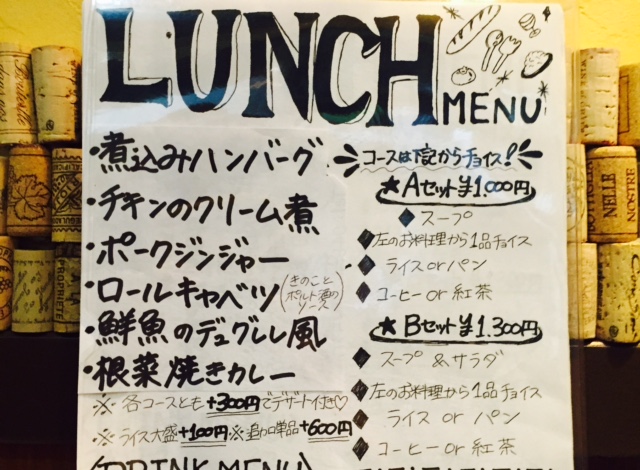 LUNCH
MENU
・煮込みハンバーグ
・チキンのクリーム煮
・ポークジンジャー
・ロールキャベツ(きのことポルト酒のソース)
・鮮魚のデュグレレ風
・根菜焼きカレー
※ 各コースとも+300円でデザート付き♡
※ライス大盛+100円※追加単品+600円
(DRINK MENU)
コースは下記からチョイス!
★Aセット¥1.000円
◆スープ
◆左のお料理から1品チョイス
◆ライスorパン
◆コーヒーor紅茶
★Bセット¥1.300円
◆スープ&サラダ
◆左のお料理から1品チョイス
◆ライス or パン
◆コーヒー or 紅茶
NELLE
NOSTRE
PROPHETE